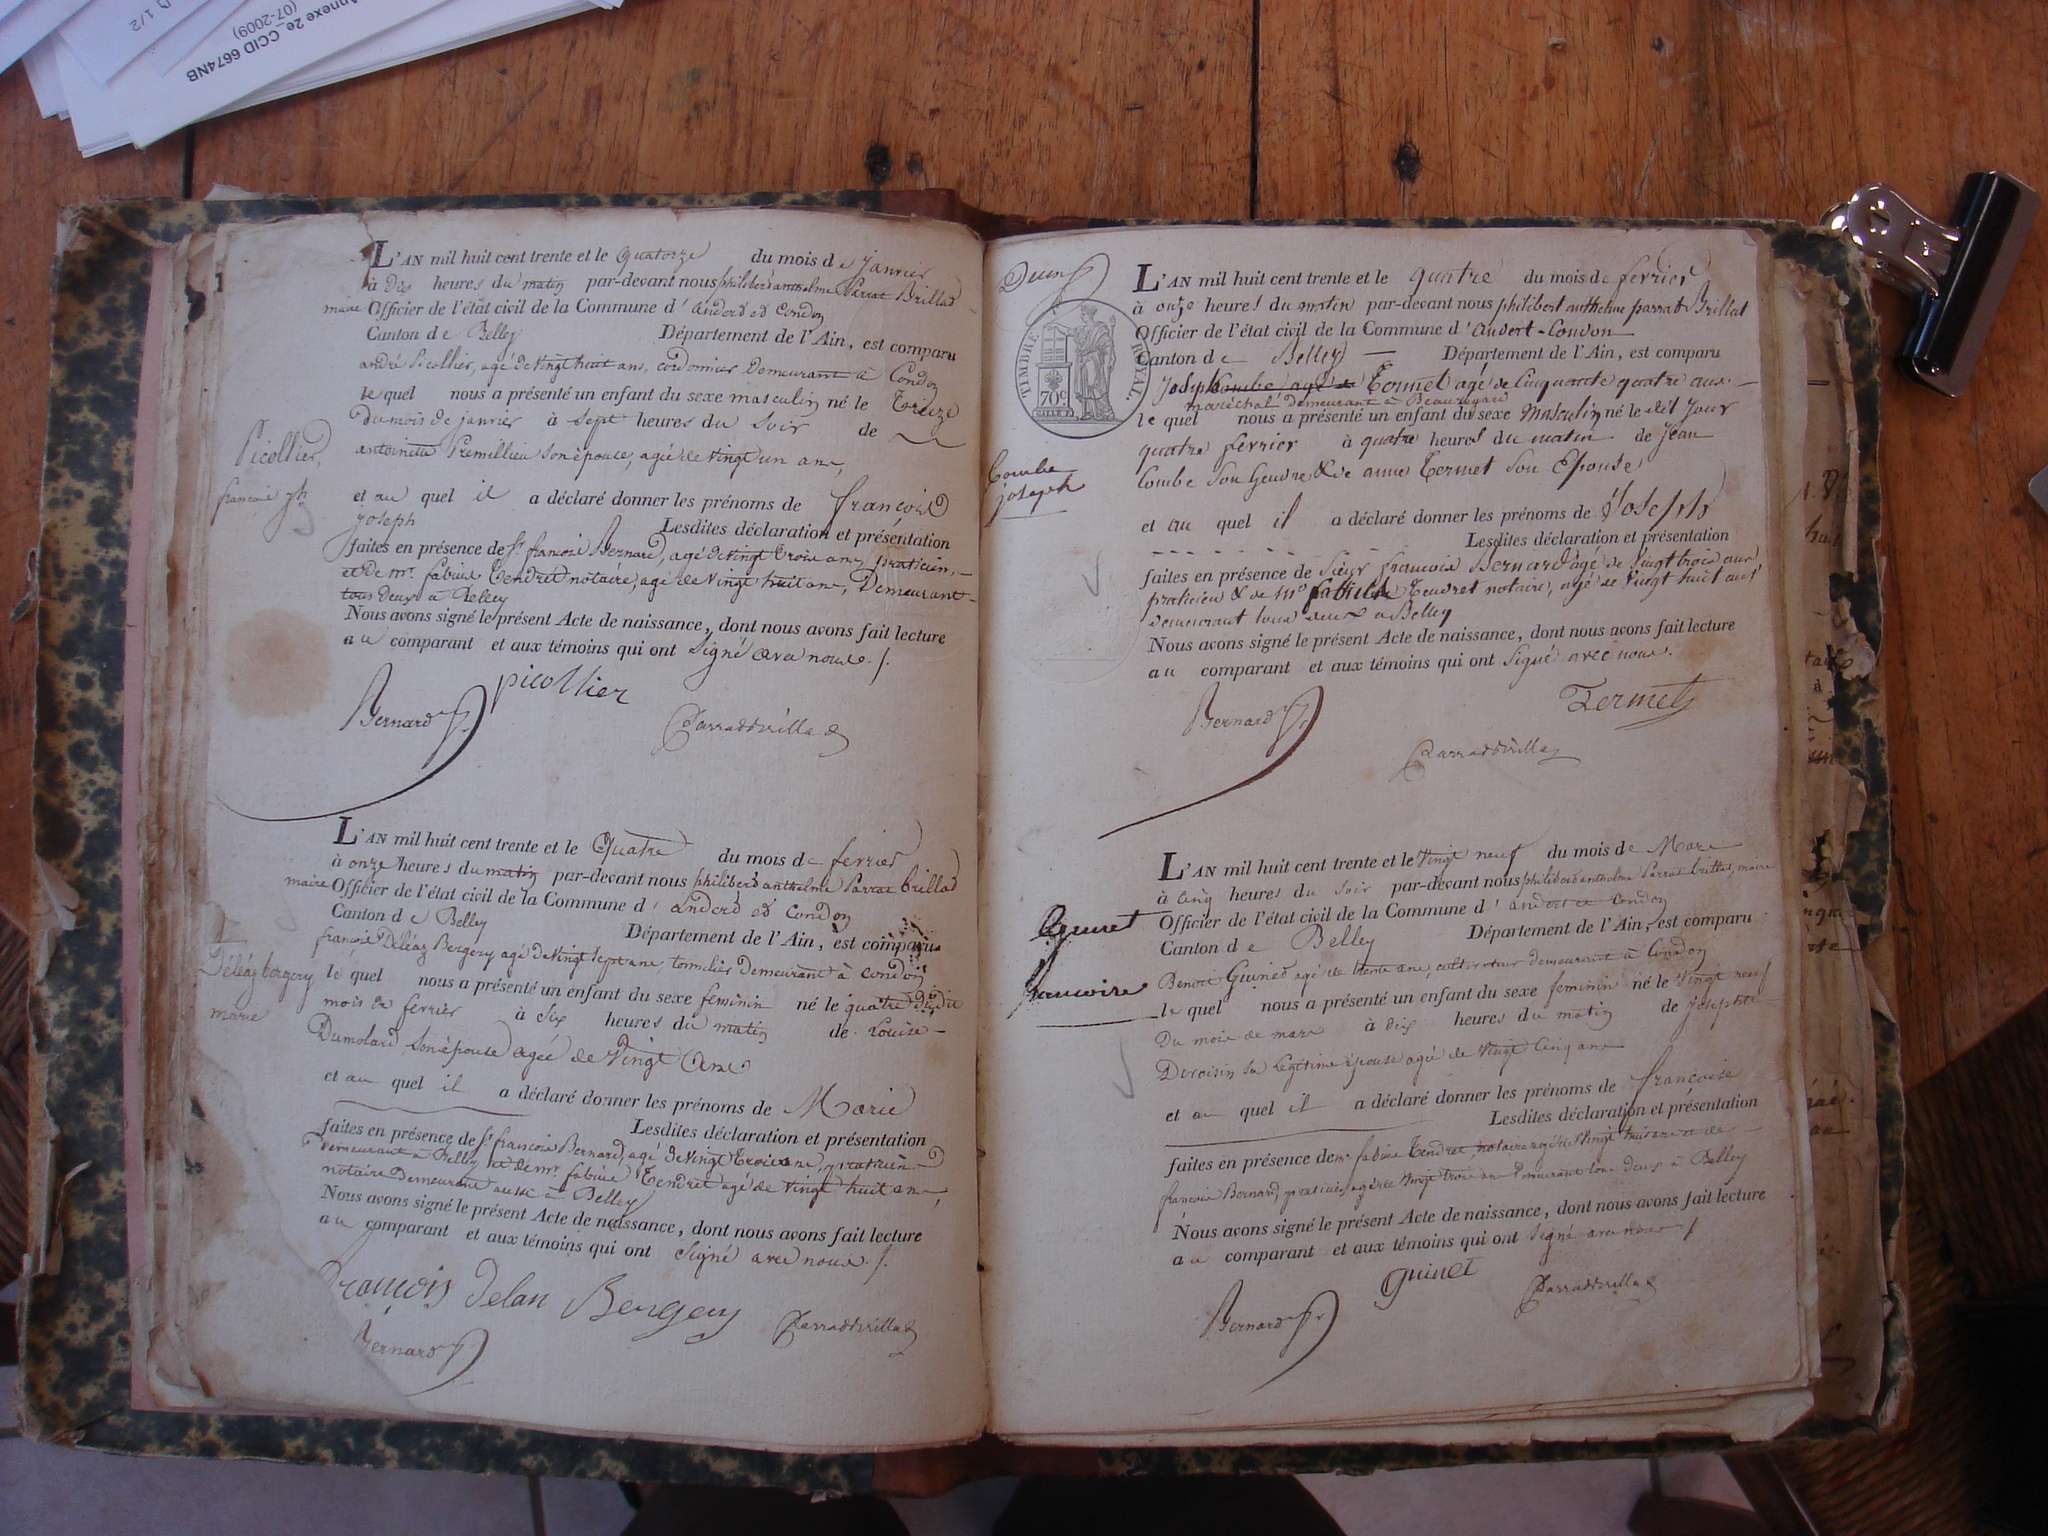 Annexe 2e_CCID 6674NB
(07-2009)
1/2
L'AN mil huit cent trente et le quatorze du mois de janvier
à dix heures du matin par-devant nous philiberd anthelme Parrat Brillad
maire Officier de l'état civil de la Commune d'anderd et Condon
Canton de Belley Département de l'Ain, est comparu
andré Picollier, agé de vingt huit ans, cordonnier Demeurant à Condon
le quel nous a présenté un enfant du sexe masculin né le Treize
Du mois de janvier à sept heures du soir de
antoinette Premillieu son épouse, agée de vingt un ans,
Picollier,
françois jh
et au quel il a déclaré donner les prénoms de françois
joseph Lesdites déclaration et présentation
faites en présence de Sr. françois Bernard, agé de vingt trois ans, praticien,
et de mr. fabius Tendret notaire, agé de vingt huit ans, Demeurant
tous Deux à Belley
Nous avons signé le présent Acte de naissance, dont nous avons fait lecture
au comparant et aux témoins qui ont signé avec nous.
Bernard picollier
Parradbrillad
L'AN mil huit cent trente et le Quatre du mois de fevrier
à onze heures du matin par-devant nous philiberd anthelme Parrat brillad
maire Officier de l'état civil de la Commune d'anderd et Condon
Canton de Belley Département de l'Ain, est comparu
françois Déléaz Bergery agé de vingt sept ans, tonnelier Demeurant à condon
Déléaz bergery
marie
le quel nous a présenté un enfant du sexe feminin né le quatre Du dit
mois de fevrier à six heures du matin de Louise
Dumolard, son épouse agée de vingt ans
et au quel il a déclaré donner les prénoms de Marie
Lesdites déclaration et présentation
faites en présence de Sr. françois Bernard, agé de vingt trois ans, praticien
Demeurant à Belley et de mr. fabius Tendret agé de vingt huit ans,
notaire Demeurant aussi à Belley
Nous avons signé le présent Acte de naissance, dont nous avons fait lecture
au comparant et aux témoins qui ont signé avec nous.
François Delan Bergery Parradbrillad
Bernard
Deux
TIMBRE ROYAL
70c
L'AN mil huit cent trente et le quatre du mois de fevrier
à onze heures du matin par-devant nous philibert anthelme parrat Brillat
Officier de l'état civil de la Commune d'andert-Condon
Canton de Belley Département de l'Ain, est comparu
joseph Combe agé de Termet agé de Cinquante quatre ans
maréchal demeurant à Beauregard
le quel nous a présenté un enfant du sexe masculin né le dit jour
quatre fevrier à quatre heures du matin de jean
Combe
joseph
Combe son Gendre & de anne Termet son Epouse
et au quel il a déclaré donner les prénoms de joseph
Lesdites déclaration et présentation
faites en présence de Sieur françois Bernard agé de vingt trois ans
praticien & de Me fabius Tendret notaire, agé de vingt huit ans
demeurant tous deux à Belley
Nous avons signé le présent Acte de naissance, dont nous avons fait lecture
au comparant et aux témoins qui ont signé avec nous.
Termet
Bernard
Parradbrillad
L'AN mil huit cent trente et le vingt neuf du mois de Mars
à cinq heures du soir par-devant nous philiberd anthelme Parrat brillat, maire
Officier de l'état civil de la Commune d'andert et Condon
Canton de Belley Département de l'Ain, est comparu
Benoit Guined agé de trente ans, cultivateur demeurant à Condon
Guinet
francoise
le quel nous a présenté un enfant du sexe feminin né le vingt neuf
Du mois de mars à dix heures du matin de josephte
Devoisin sa Légitime épouse agée de vingt cinq ans
et au quel il a déclaré donner les prénoms de françoise
Lesdites déclaration et présentation
faites en présence de mr. fabius Tendret notaire agé de vingt huit ans et de
françois Bernard, praticien agé de vingt trois ans Demeurant tous deux à Belley
Nous avons signé le présent Acte de naissance, dont nous avons fait lecture
au comparant et aux témoins qui ont signé avec nous
guinet Parradbrillad
Bernard